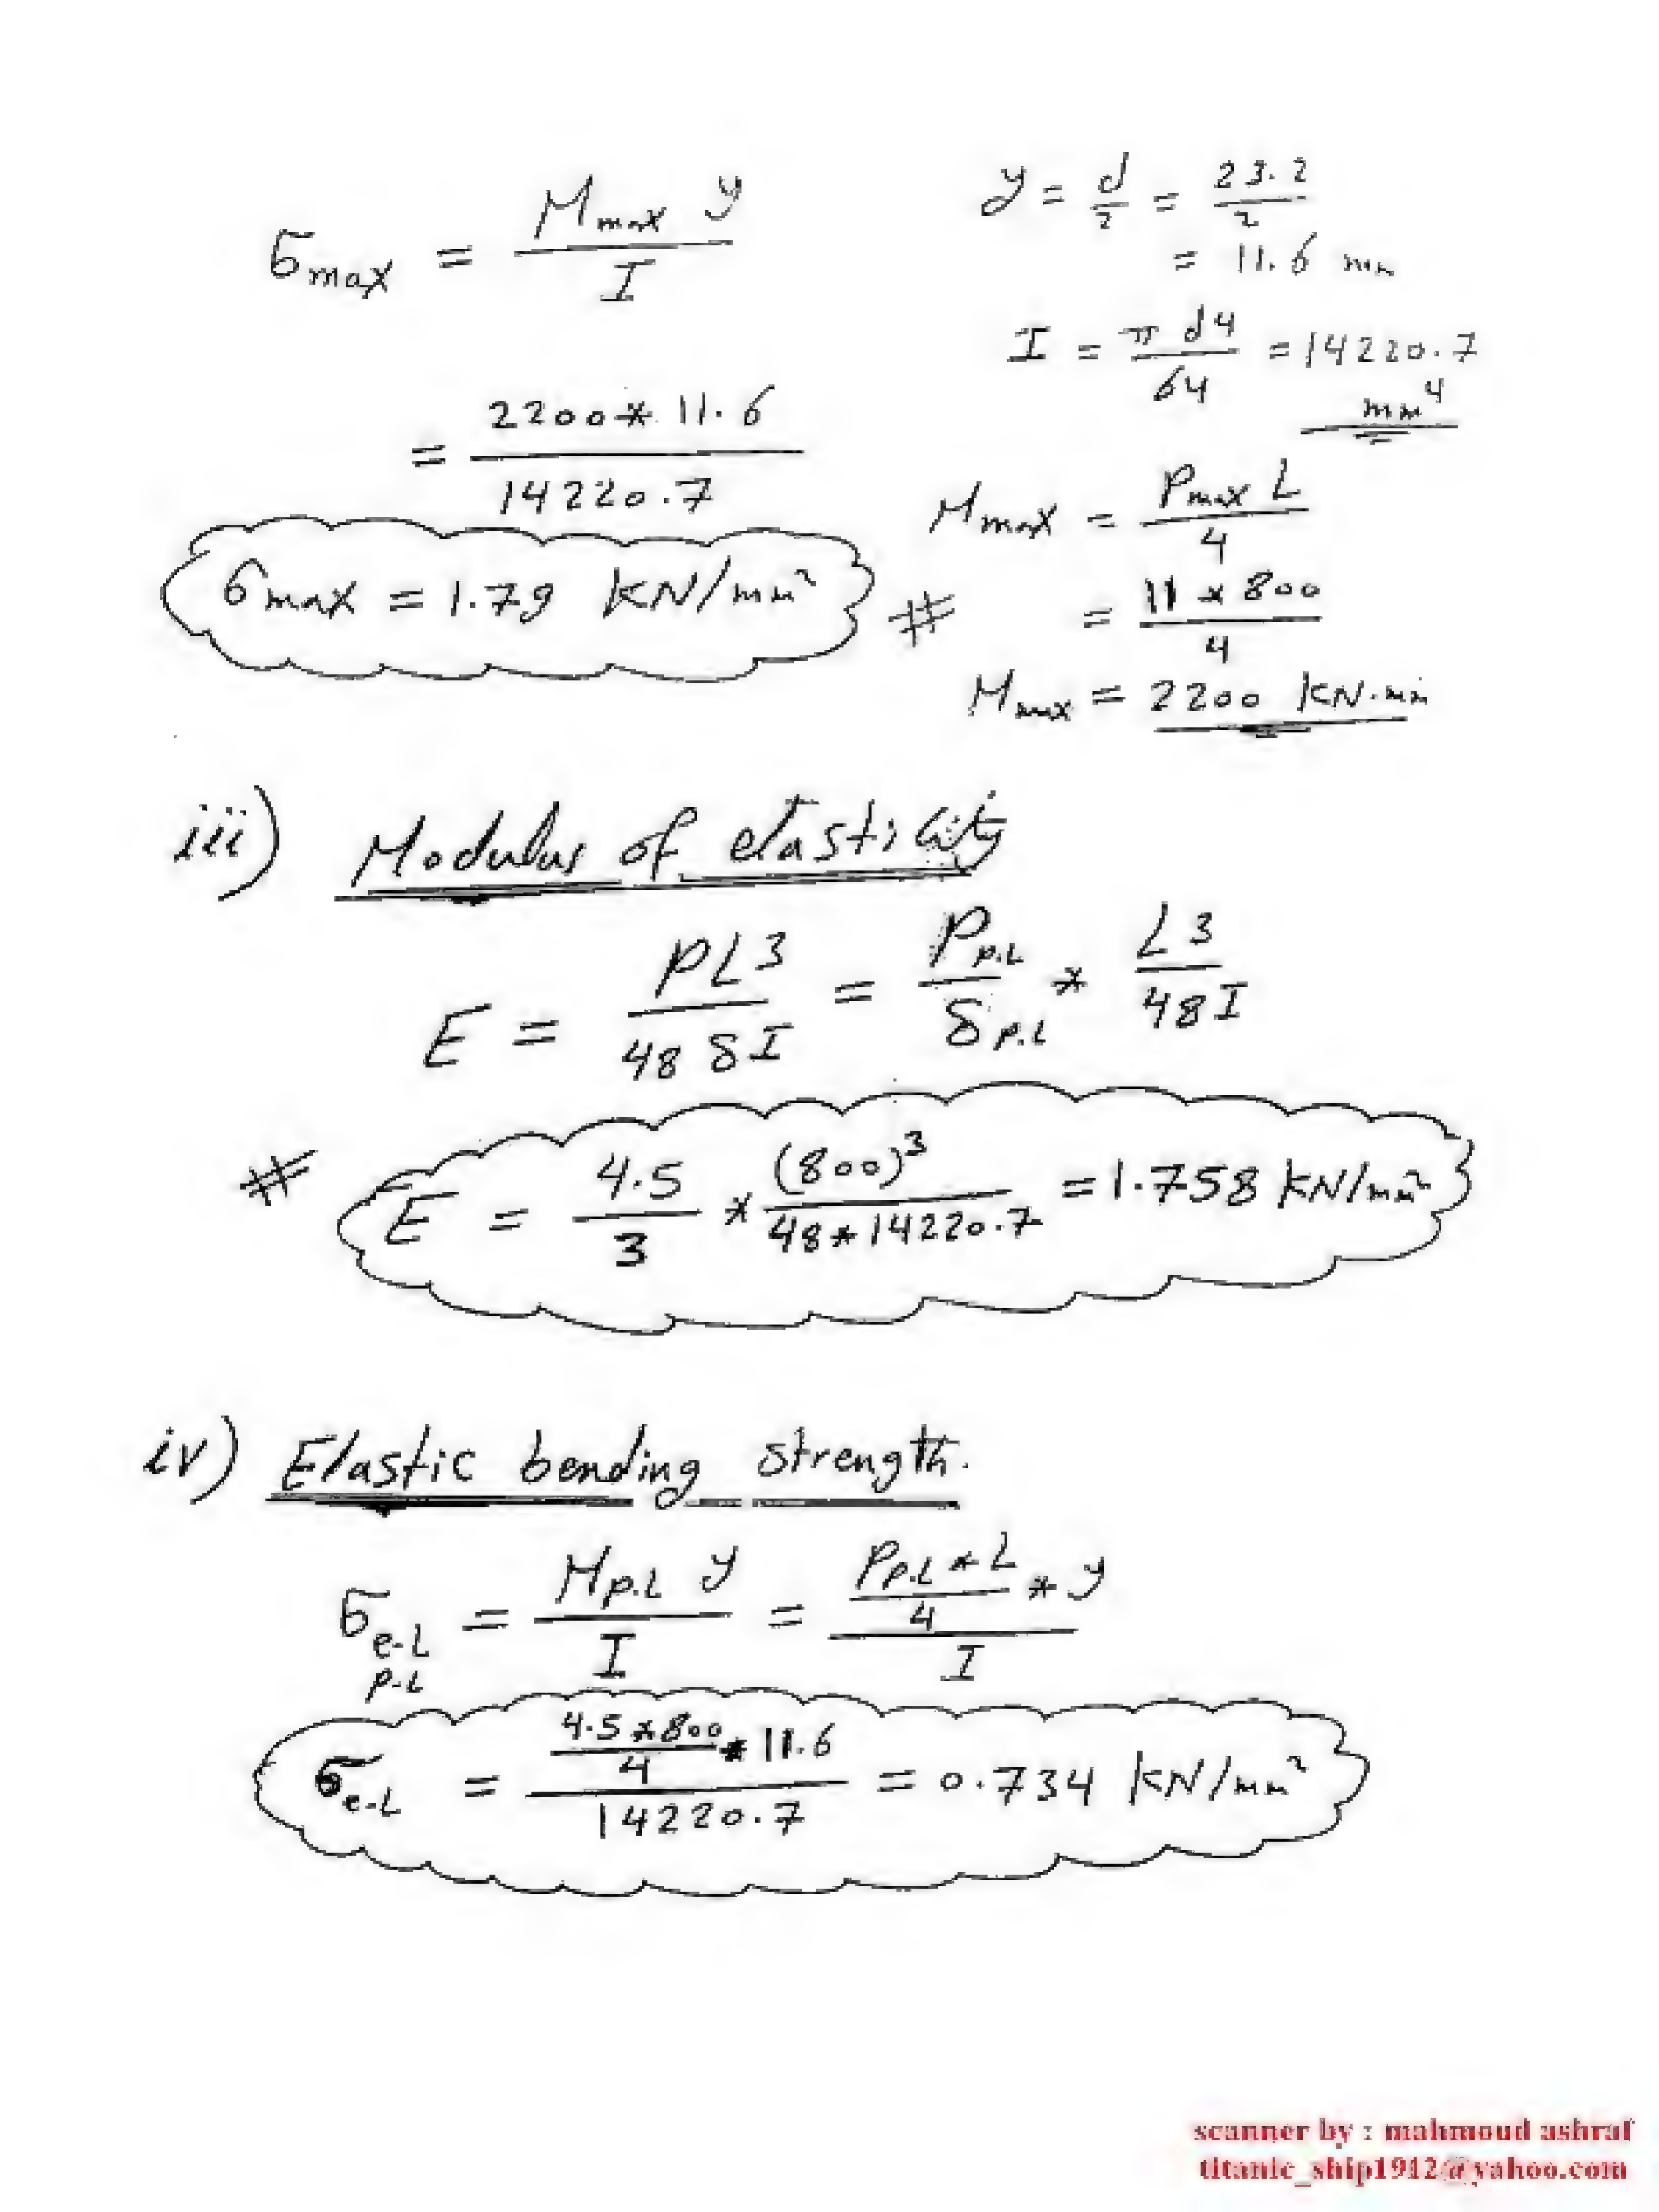 σmax = Mmax y / I
y = d/2 = 23.2/2
= 11.6 mm
I = π d4 / 64 = 14220.7
mm⁴
= 2200 * 11.6 / 14220.7
Mmax = Pmax L / 4
σmax = 1.79 KN/mm² #
= 11 * 800 / 4
Mmax = 2200 KN.mm
iii) Modulus of elasticity
E = PL3 / 48 δ I = Pp.L / δp.L * L3 / 48 I
# E = 4.5 / 3 * (800)³ / 48 * 14220.7 = 1.758 KN/mm²
iv) Elastic bending strength.
σe.L p.L = Mp.L y / I = Pp.L * L / 4 * y / I
σe.L = 4.5 * 800 / 4 * 11.6 / 14220.7 = 0.734 KN/mm²
scanner by : mahmoud ashraf
titanic_ship1912@yahoo.com